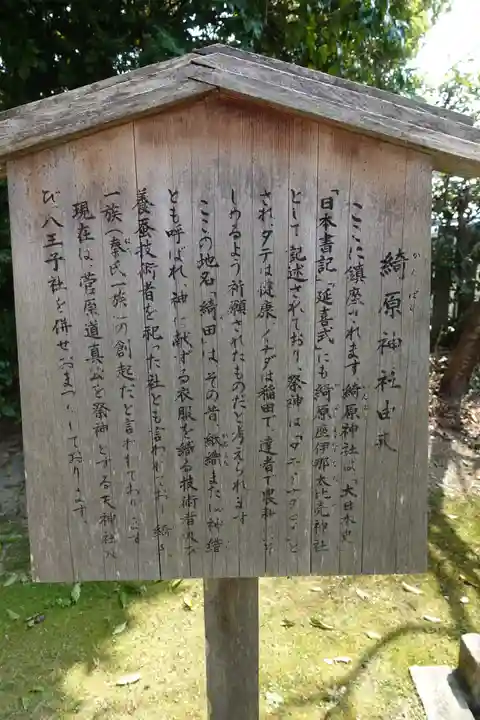 綺原神社由来
ここに鎮座されます綺原神社は、「大日本史」
「日本書記」「延喜式」にも綺原座健伊那太比売神社
として記述されており、祭神は、「タテーイナダヒメ」と
され、タテは健康、イナダは稲田で、達者で豊耕
しめるよう祈願されたものだと考えられます
ここの地名「綺田」は、その昔、紙織または神織
とも呼ばれ、神に献ずる衣服を織る技術者
養蚕技術者を祀った社とも言われており
一族(秦氏一族)の創起だと言われております
現在は、菅原道真公を祭神とする天神社及
び八王子社を併せおまつりしております